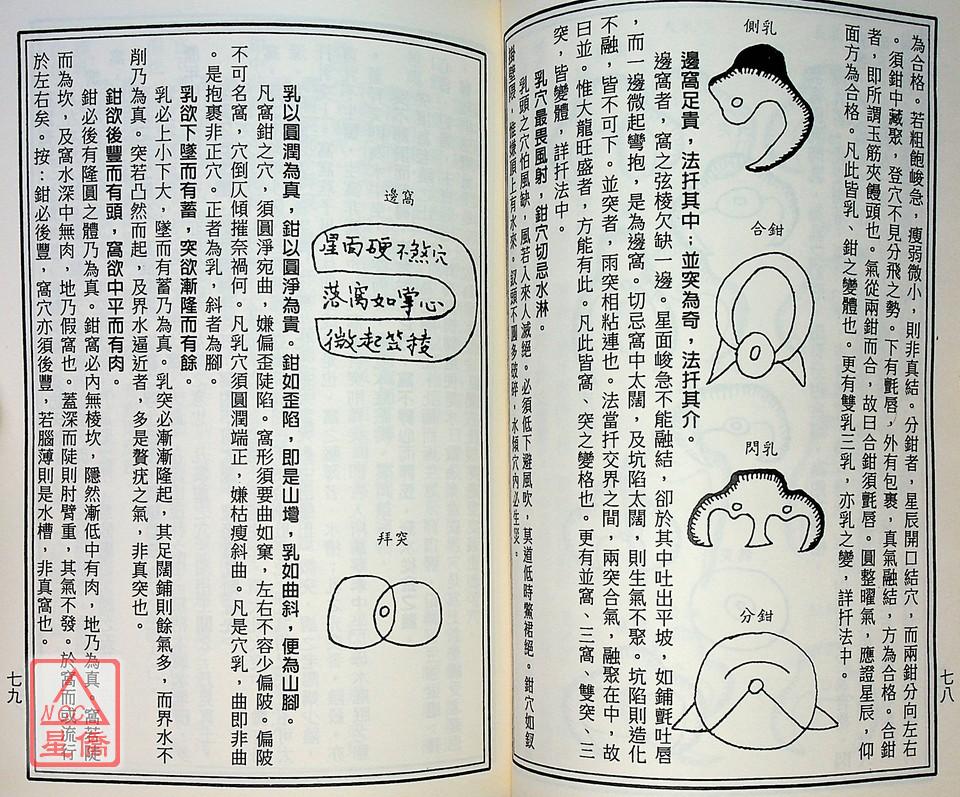 為合格。若粗飽峻急，瘦弱微小，則非真結。分鉗者，星辰開口結穴，而兩鉗分向左右
。須鉗中藏聚，登穴不見分飛之勢。下有氈唇，外有包裹，真氣融結，方為合格。合鉗
者，即所謂玉筯夾饅頭也。氣從兩鉗而合，故曰合鉗須氈唇。圓整曜氣，應證星辰，仰
面方為合格。凡此皆乳、鉗之變體也。更有雙乳三乳，亦乳之變，詳扦法中。
側乳
合鉗
閃乳
分鉗
邊窩足貴，法扦其中；並突為奇，法扦其介。
邊窩者，窩之弦棱欠缺一邊。星面峻急不能融結，卻於其中吐出平坡，如鋪氈吐唇
，而一邊微起彎抱，是為邊窩。切忌窩中太闊，及坑陷太闊，則生氣不聚。坑陷則造化
不融，皆不可下。並突者，兩突相粘連也。法當扦交界之間，兩突合氣，融聚在中，故
曰並。惟大龍旺盛者，方能有此。凡此皆窩、突之變格也。更有並窩、三窩、雙突、三
突，皆變體，詳扦法中。
乳穴最畏風射，鉗穴切忌水淋。
乳頭之穴怕風缺，風若入來人滅絕。必須低下避風吹，莫道低時鱉裙絕。鉗穴如釵
掛壁隈，惟嫌頂上有水來。釵頭不圓多破碎，水傾穴內必生災。
邊窩
星面硬不煞穴
落窩如掌心
微起弦棱
拜突
乳以圓潤為真，鉗以圓淨為貴。鉗如歪陷，即是山壪，乳如曲斜，便為山腳。
凡窩鉗之穴，須圓淨宛曲，嫌偏歪陡陷。窩形須要曲如窠，左右不容少偏陂。偏陂
不可名窩，穴倒仄傾摧奈禍何。凡乳穴須圓潤端正，嫌枯瘦斜曲。凡是穴乳，曲即非曲
。是抱裹非正穴。正者為乳，斜者為腳。
乳欲下墜而有蓄，突欲漸隆而有餘。
乳必上小下大，墜而有蓄乃為真。乳突必漸漸隆起，其足闊鋪則餘氣多，而界水不
削乃為真。突若凸然而起，及界水逼近者，多是贅疣之氣，非真突也。
鉗欲後豐而有頭，窩欲中平而有肉。
鉗必後有隆圓之體乃為真。鉗窩必內無棱坎，隱然漸低中有肉，地乃為真。窩若陡
而為坎，及窩水深中無肉，地乃假窩也。蓋深而陡則肘臂重，其氣不發。於窩而或流行
於左右矣。按：鉗必後豐，窩穴亦須後豐，若腦薄則是水槽，非真窩也。
七八
七九
NCC
星僑